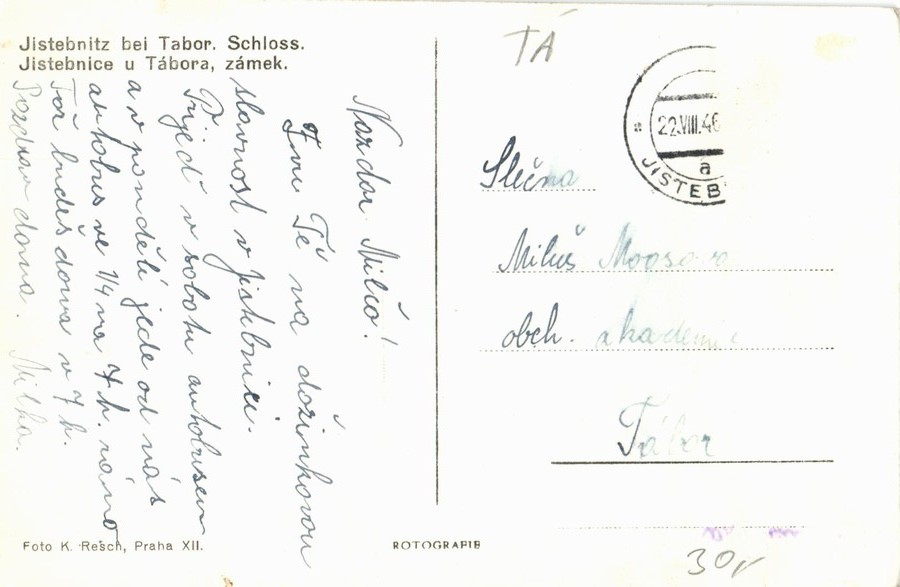 Jistebnitz bei Tabor. Schloss.
Jistebnice u Tábora, zámek.
Nazdar Milčo!
Zvu Tě na dožinkovou
slavnost v Jistebnici.
Přijeď v sobotu autobusem
a v pondělí jede od nás
autobus ve 1/4 na 7 h. ráno
Tož budeš doma v 7 h.
Pozdrav doma. Milka.
TÁ
22.VIII.46
a
JISTEB
Slečna
Miluš Moosova
obch. akademie
Tábor
Foto K. Resch, Praha XII.
ROTOGRAFIE
30,-